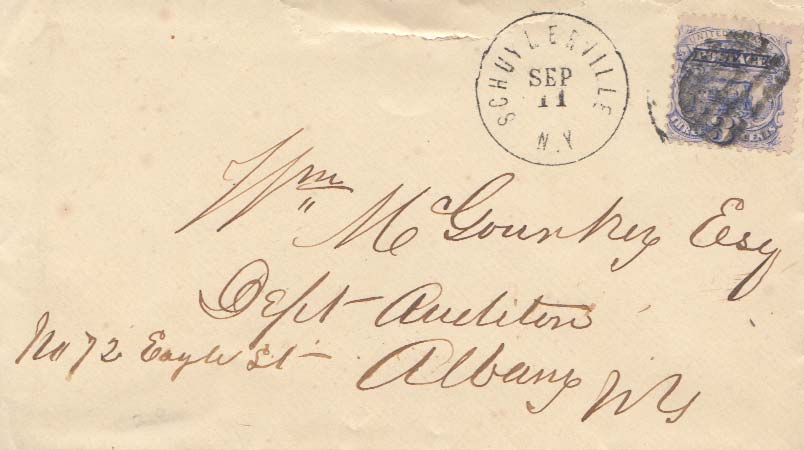 SCHUYLERVILLE
SEP
11
N.Y
UNITED
POSTAGE
3
Wm McGourkey Esq
Dept Auditor
No 72 Eagle St
Albany NY